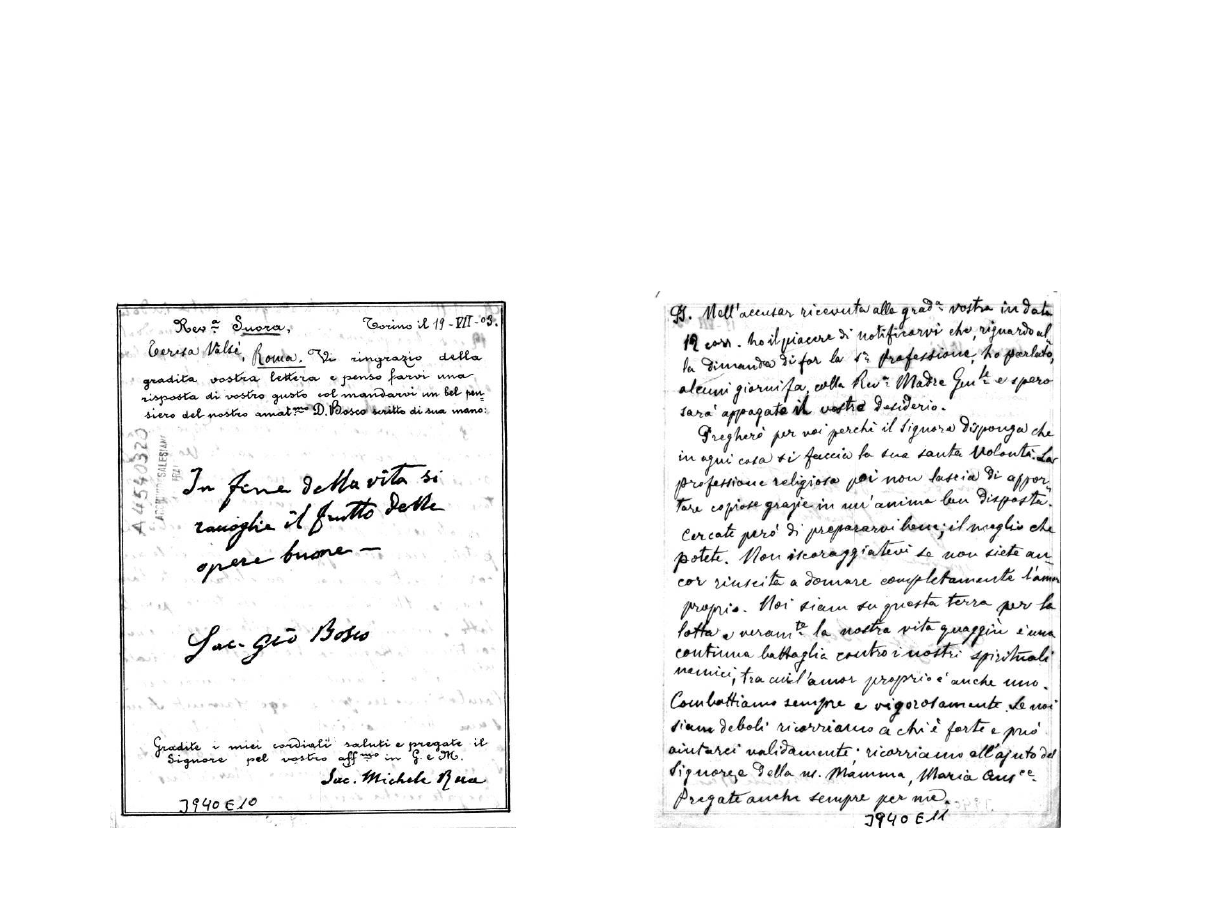 Rev.ª Suora, Torino il 19-VII-03.
Teresa Valsé, Roma. Vi ringrazio della
gradita vostra lettera e penso farvi una
risposta di vostro gusto col mandarvi un bel pen=
siero del nostro amat.mo D. Bosco scritto di sua mano:
In fine della vita si
raccoglie il frutto delle
opere buone —
Sac. Gio Bosco
Gradite i miei cordiali saluti e pregate il
Signore pel vostro aff.mo in G. e M.
Sac. Michele Rua
J940 E10
A4540320
SALESIANO
Nell'accusar ricevuta alla grad.ª vostra in data
12 corr. ho il piacere di notificarvi che, riguardo al
la dimanda di far la Professione, ho parlato,
alcuni giorni fa, colla Rev.ª Madre Gen.le e spero
sarà appagato il vostro desiderio.
Pregherò per voi perchè il Signore disponga che
in ogni cosa si faccia la sua santa Volontà. La
professione religiosa poi non lascia di appor=
tare copiose grazie in un'anima ben disposta.
Cercate però di prepararvi bene; il meglio che
potete. Non iscoraggiatevi se non siete an=
cor riuscita a domare completamente l'amor
proprio. Noi siam su questa terra per la
lotta e veram.te la nostra vita quaggiù è una
continua battaglia contro i nostri spirituali
nemici, tra cui l'amor proprio è anche uno.
Combattiamo sempre e vigorosamente. Se noi
siam deboli ricorriamo a chi è forte e può
aiutarci validamente; ricorriamo all'ajuto del
Signore e della n. Mamma, Maria Aus.ce
Pregate anche sempre per me.
J940 E11